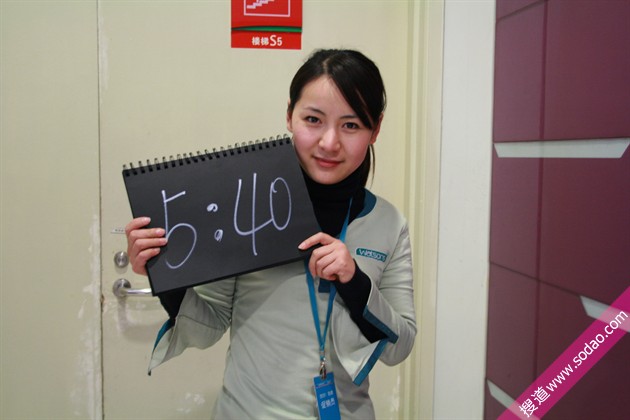 楼梯S5
5:40
Watsons
搜道www.sodao.com